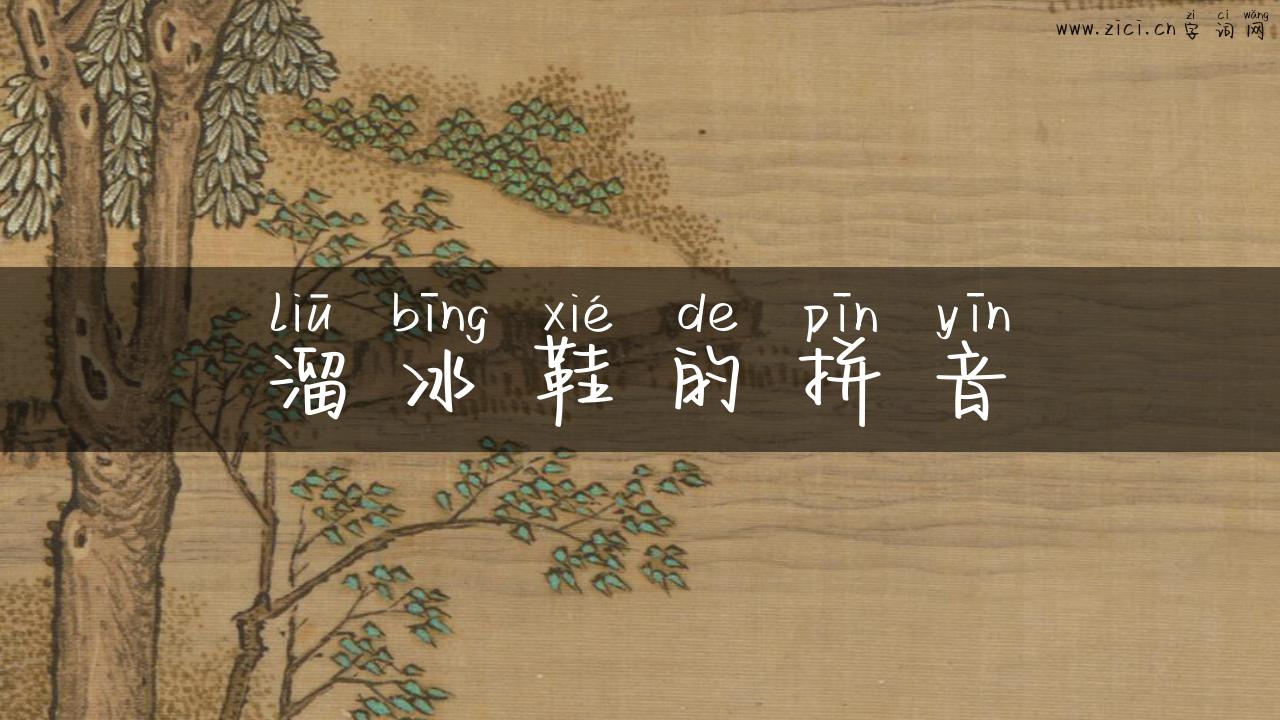 zì cí wǎng
www.zici.cn 字词网
liū bīng xié de pīn yīn
溜冰鞋的拼音